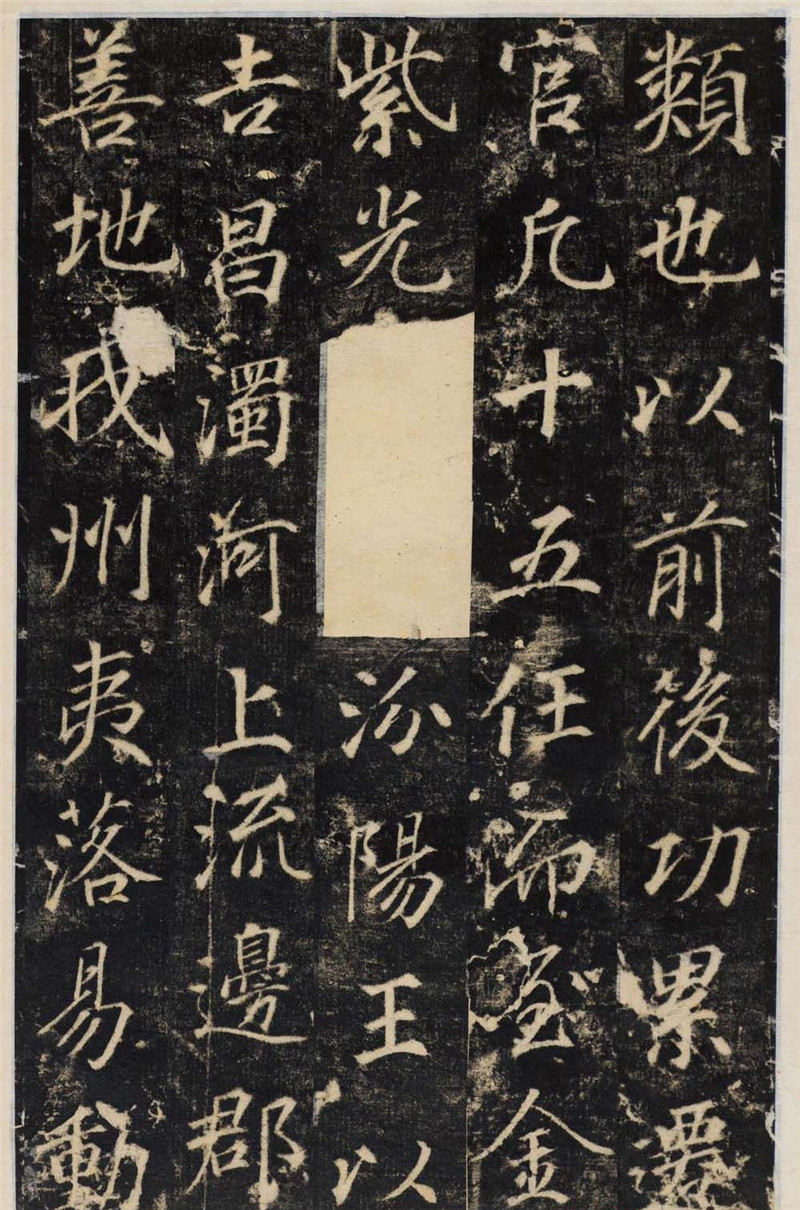 類也以前後功累遷
官凡十五任而至金
紫光
汾陽王以
吉昌濁河上流邊郡
善地我州夷落易動